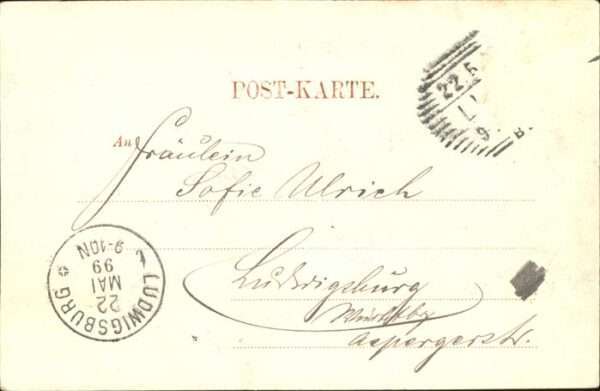 POST-KARTE.
22.5
9. B.
An Fräulein
Sofie Ulrich
Ludwigsburg
Aspergerstr.
LUDWIGSBURG
22
MAI
99
9-10N